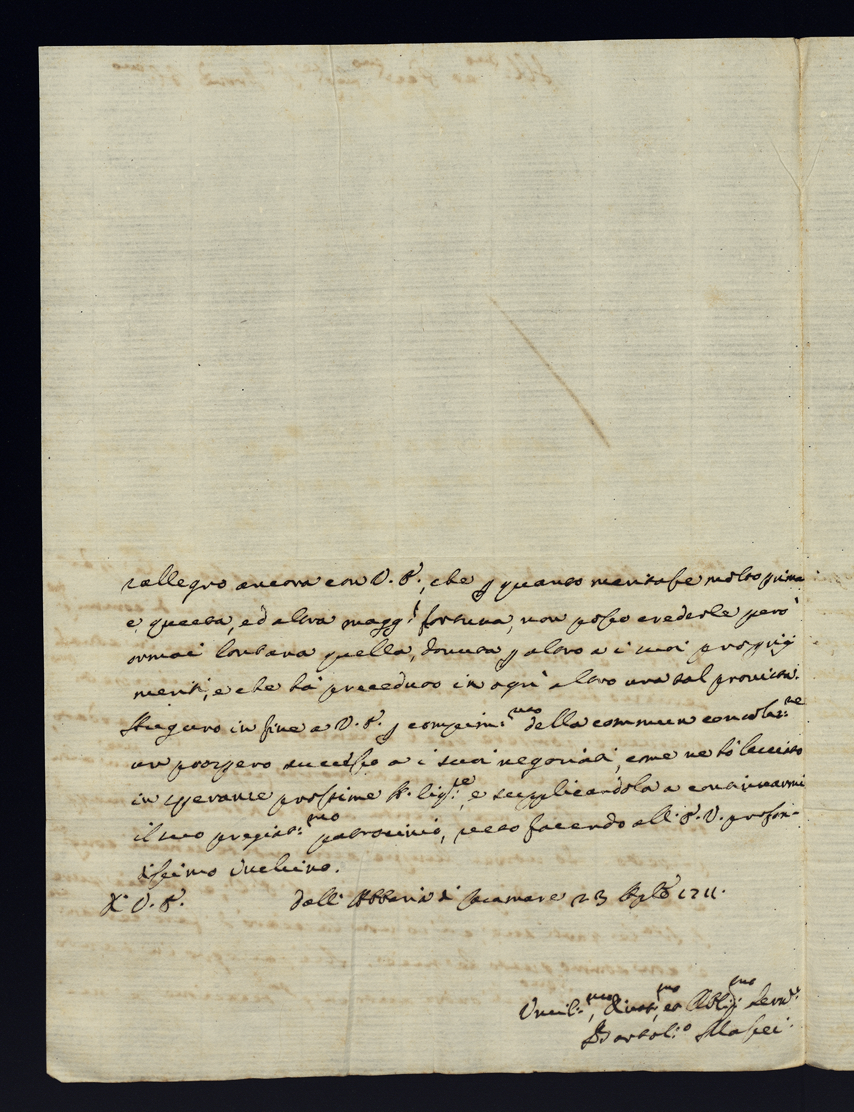 rallegro ancora con V. S., che p quanto meritasse molto prima
e questa, ed altra magg.e fortuna, non posso crederle però
ormai lontana quella, dovuta p altro a i suoi proprij
meriti, e che hà preceduto in ogn' altro una tal
Auguro in fine a V. S. p compim.to della commun consolaz.ne
un prospero successo a i suoi negoziati, come ne hò
in speranze prossime e supplicandola a continuarmi
il suo pregiat.mo patrocinio, resto facendo all' S. V. profon-
dissimo inchino.
Di V. S. dall' Abbazia di 23 1711.
Umil.mo, Divot.mo, ed Obblig.mo Serv.e
Bartol.o Maffei.